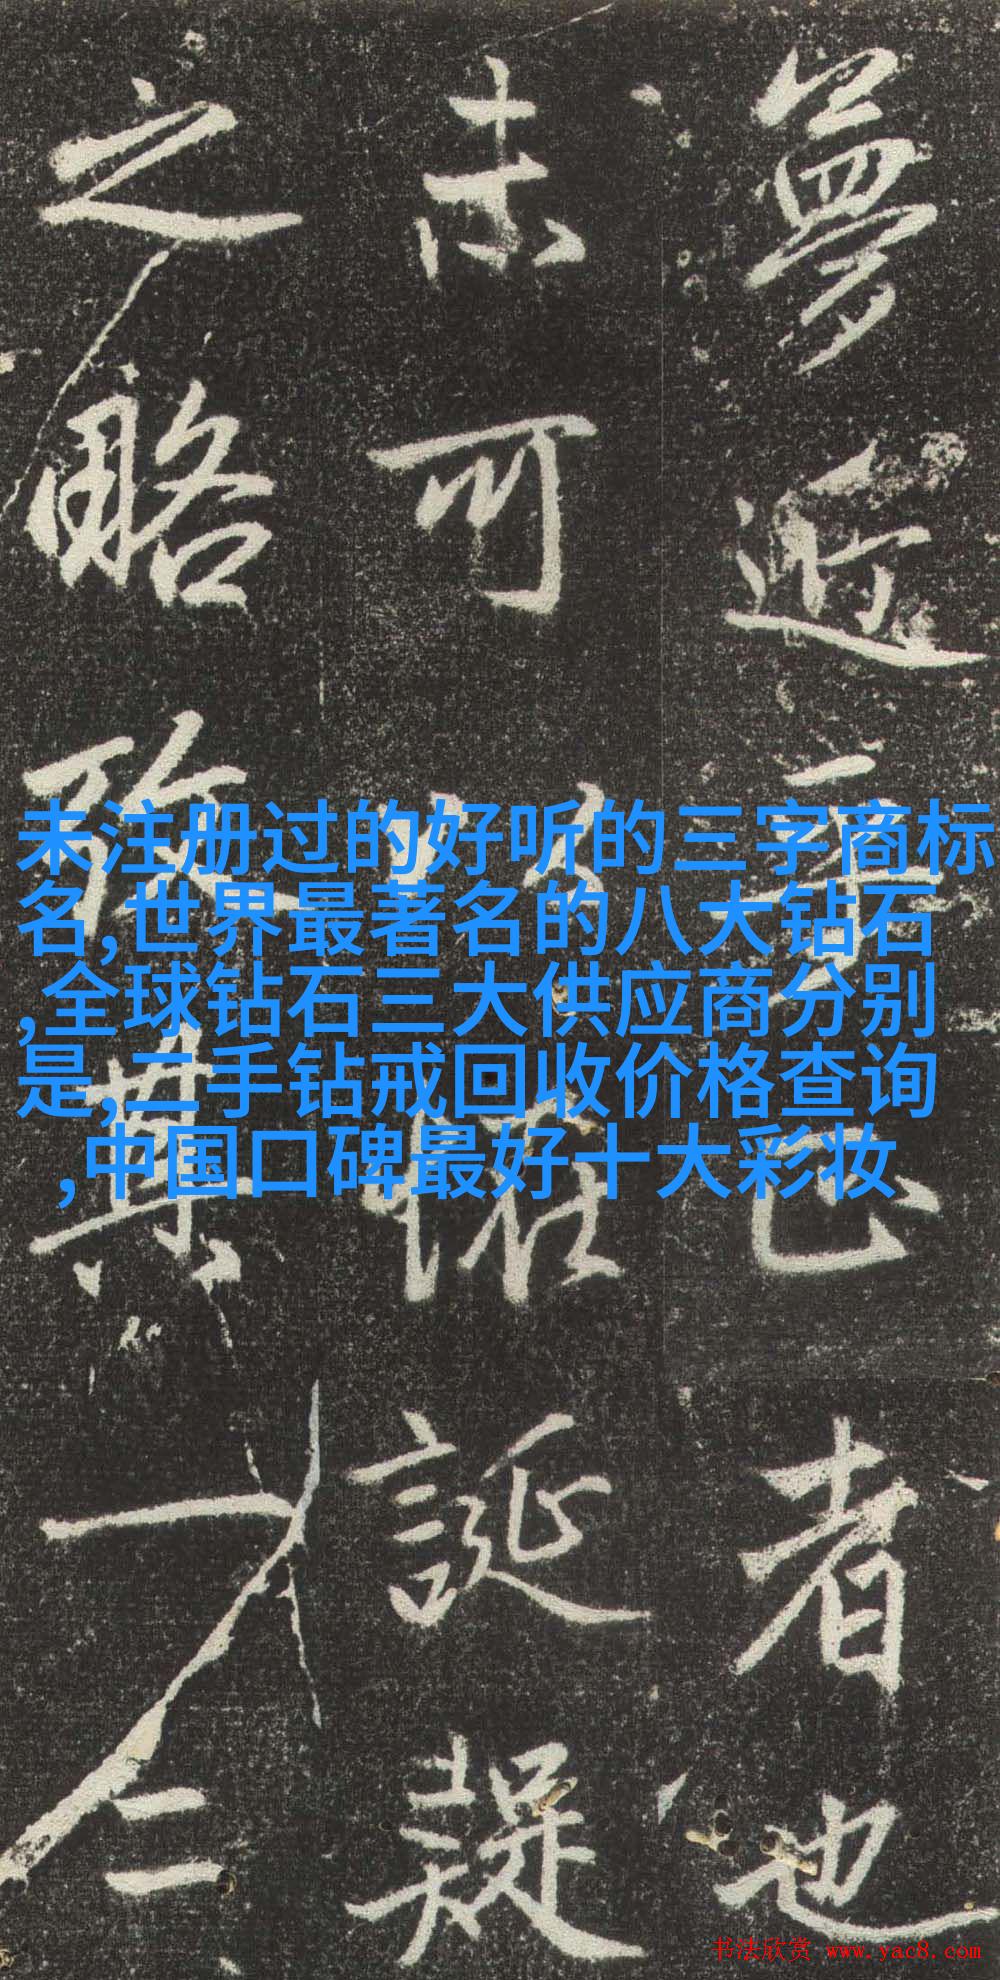 夢近事者也
可以怪誕疑
之略其一二
未注册过的好听的三字商标
名,世界最著名的八大钻石
,全球钻石三大供应商分别
是,二手钻戒回收价格查询
,中国口碑最好十大彩妆
书法欣赏 www.yac8.com